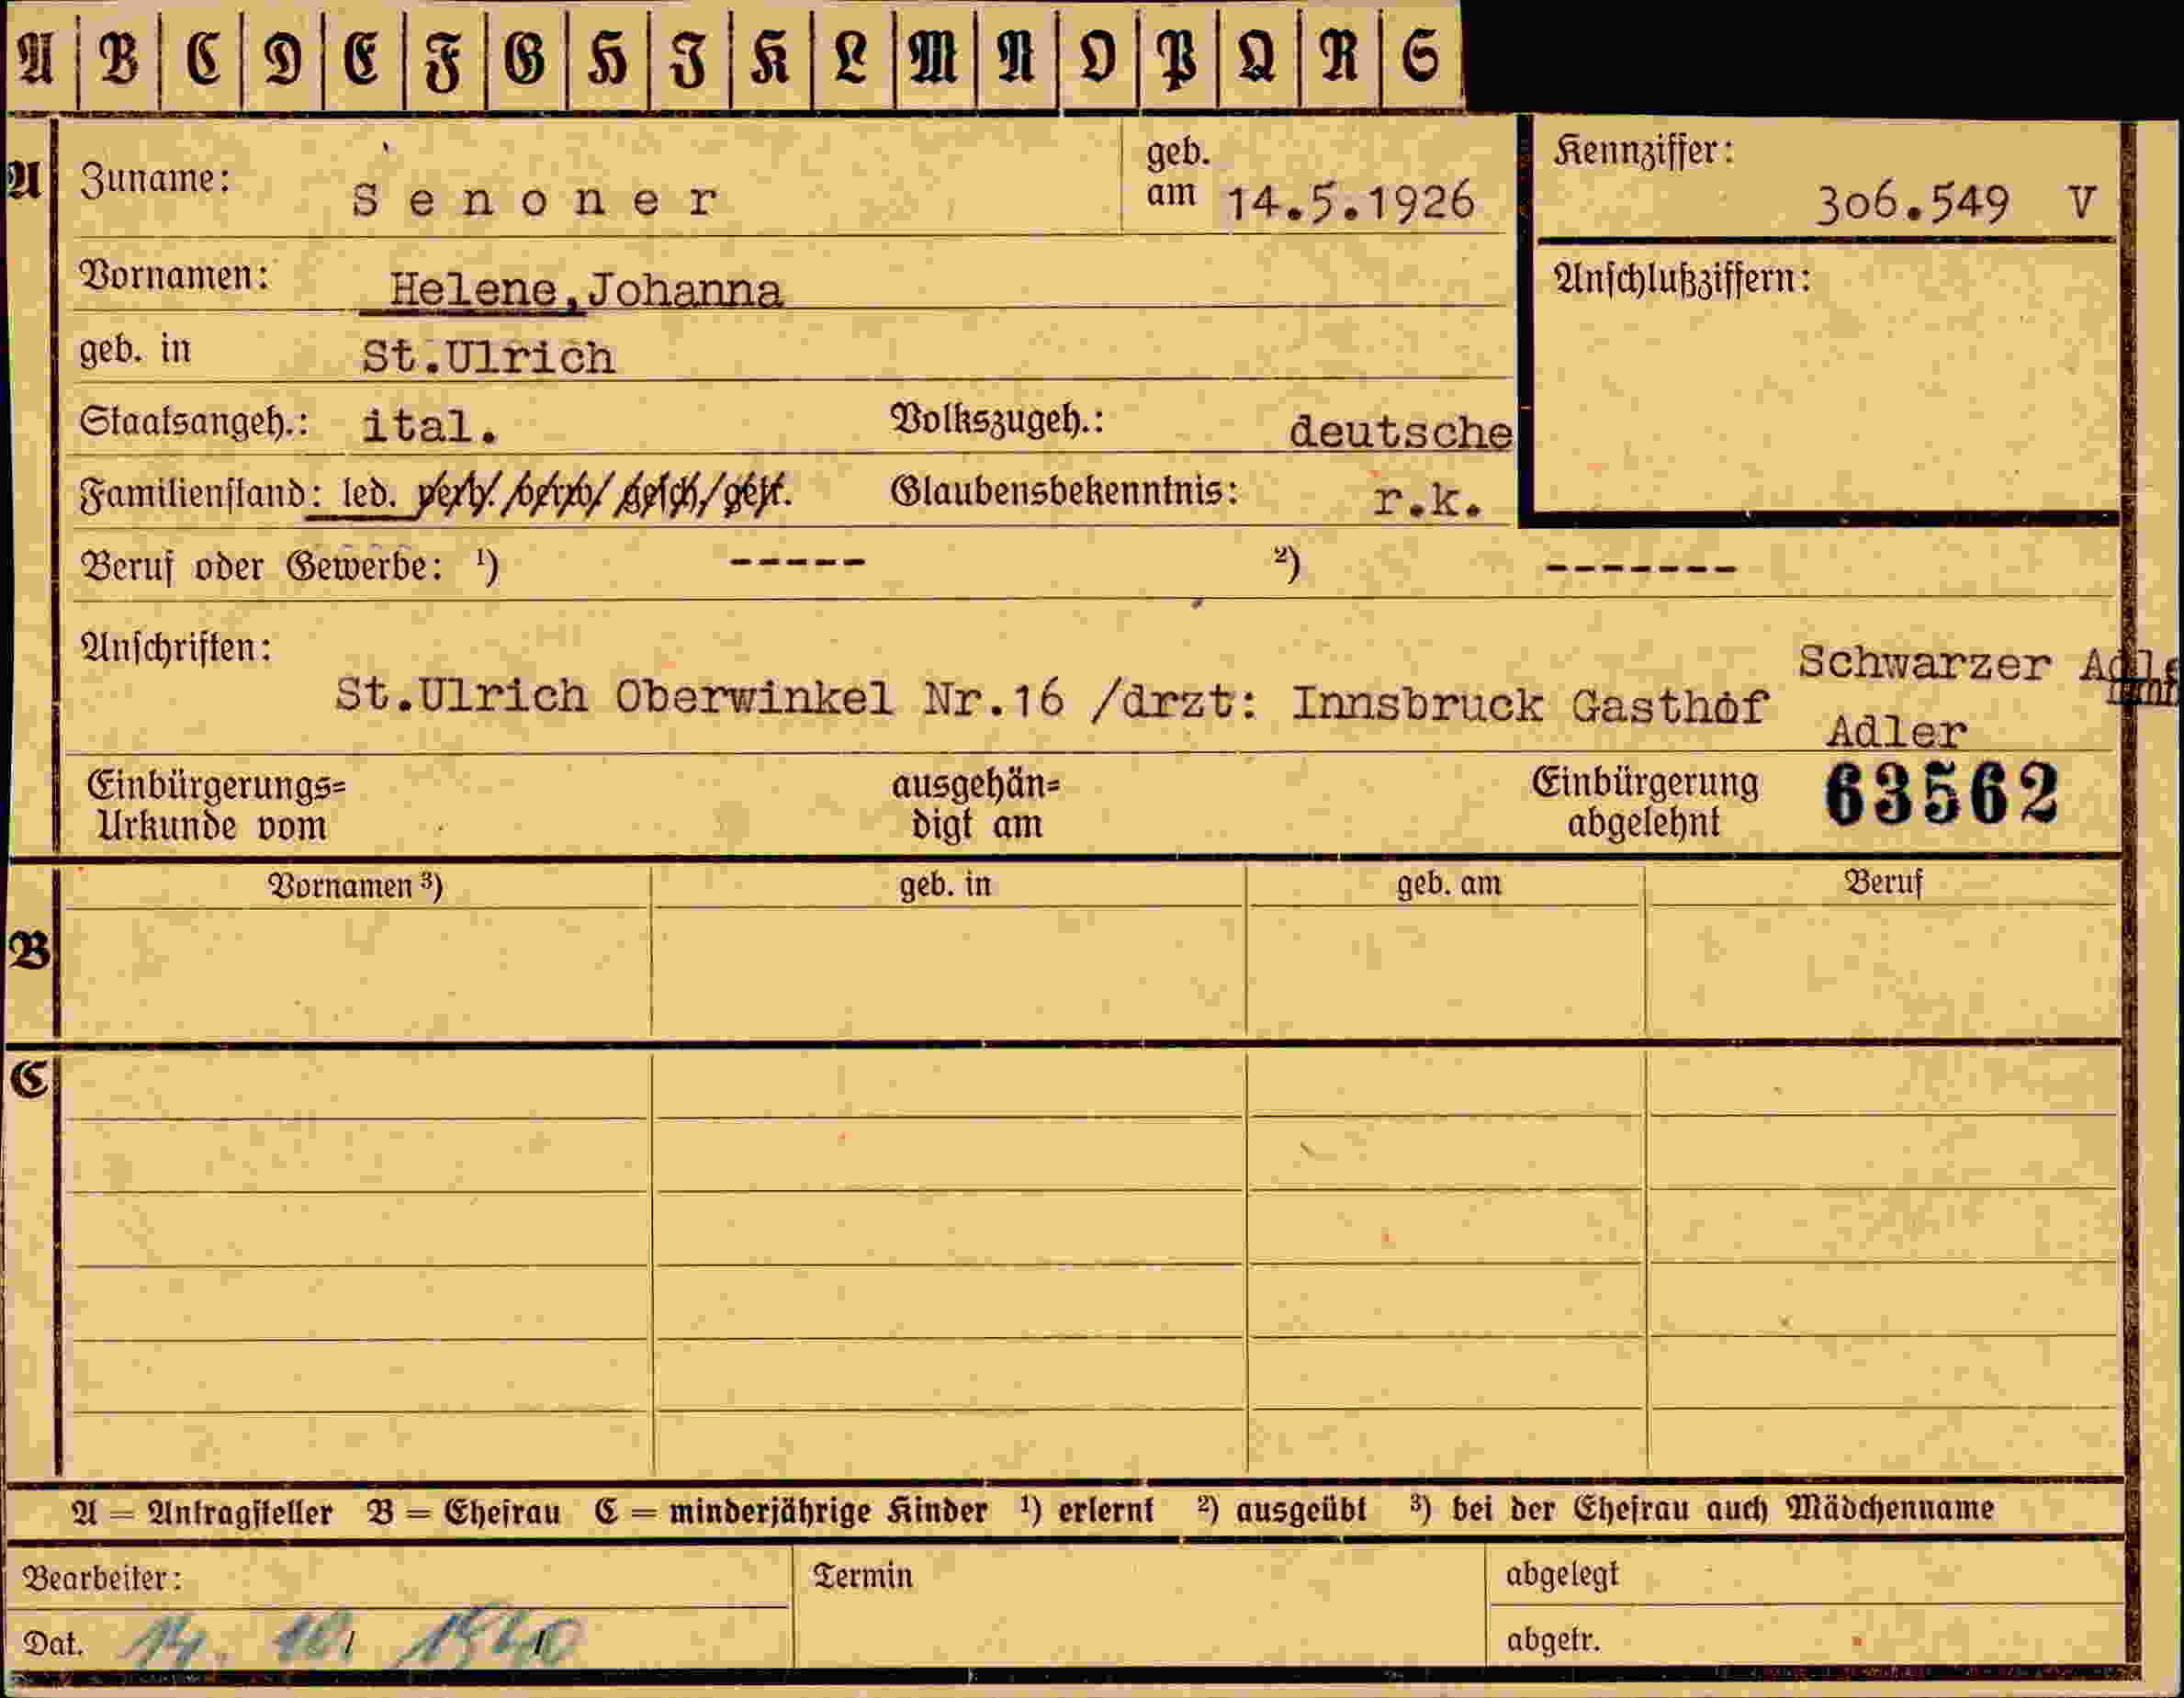 A B C D E F G H J K L M N O P Q R S
A
Zuname: Senoner geb. am 14.5.1926
Kennziffer: 306.549 V
Vornamen: Helene,Johanna
Anschlußziffern:
geb. in St.Ulrich
Staatsangeh.: ital. Volkszugeh.: deutsche
Familienstand: led. verh. verw. gesch. get. Glaubensbekenntnis: r.k.
Beruf oder Gewerbe: ¹) ----- ²) -------
Anschriften:
St.Ulrich Oberwinkel Nr.16 /drzt: Innsbruck Gasthof Schwarzer
Adler
Einbürgerungs=
Urkunde vom
ausgehän=
digt am
Einbürgerung
abgelehnt
63562
B
Vornamen ³) geb. in geb. am Beruf
C
A = Antragsteller B = Ehefrau C = minderjährige Kinder ¹) erlernt ²) ausgeübt ³) bei der Ehefrau auch Mädchenname
Bearbeiter: Termin abgelegt
Dat. 14. 10. 1940 abgetr.